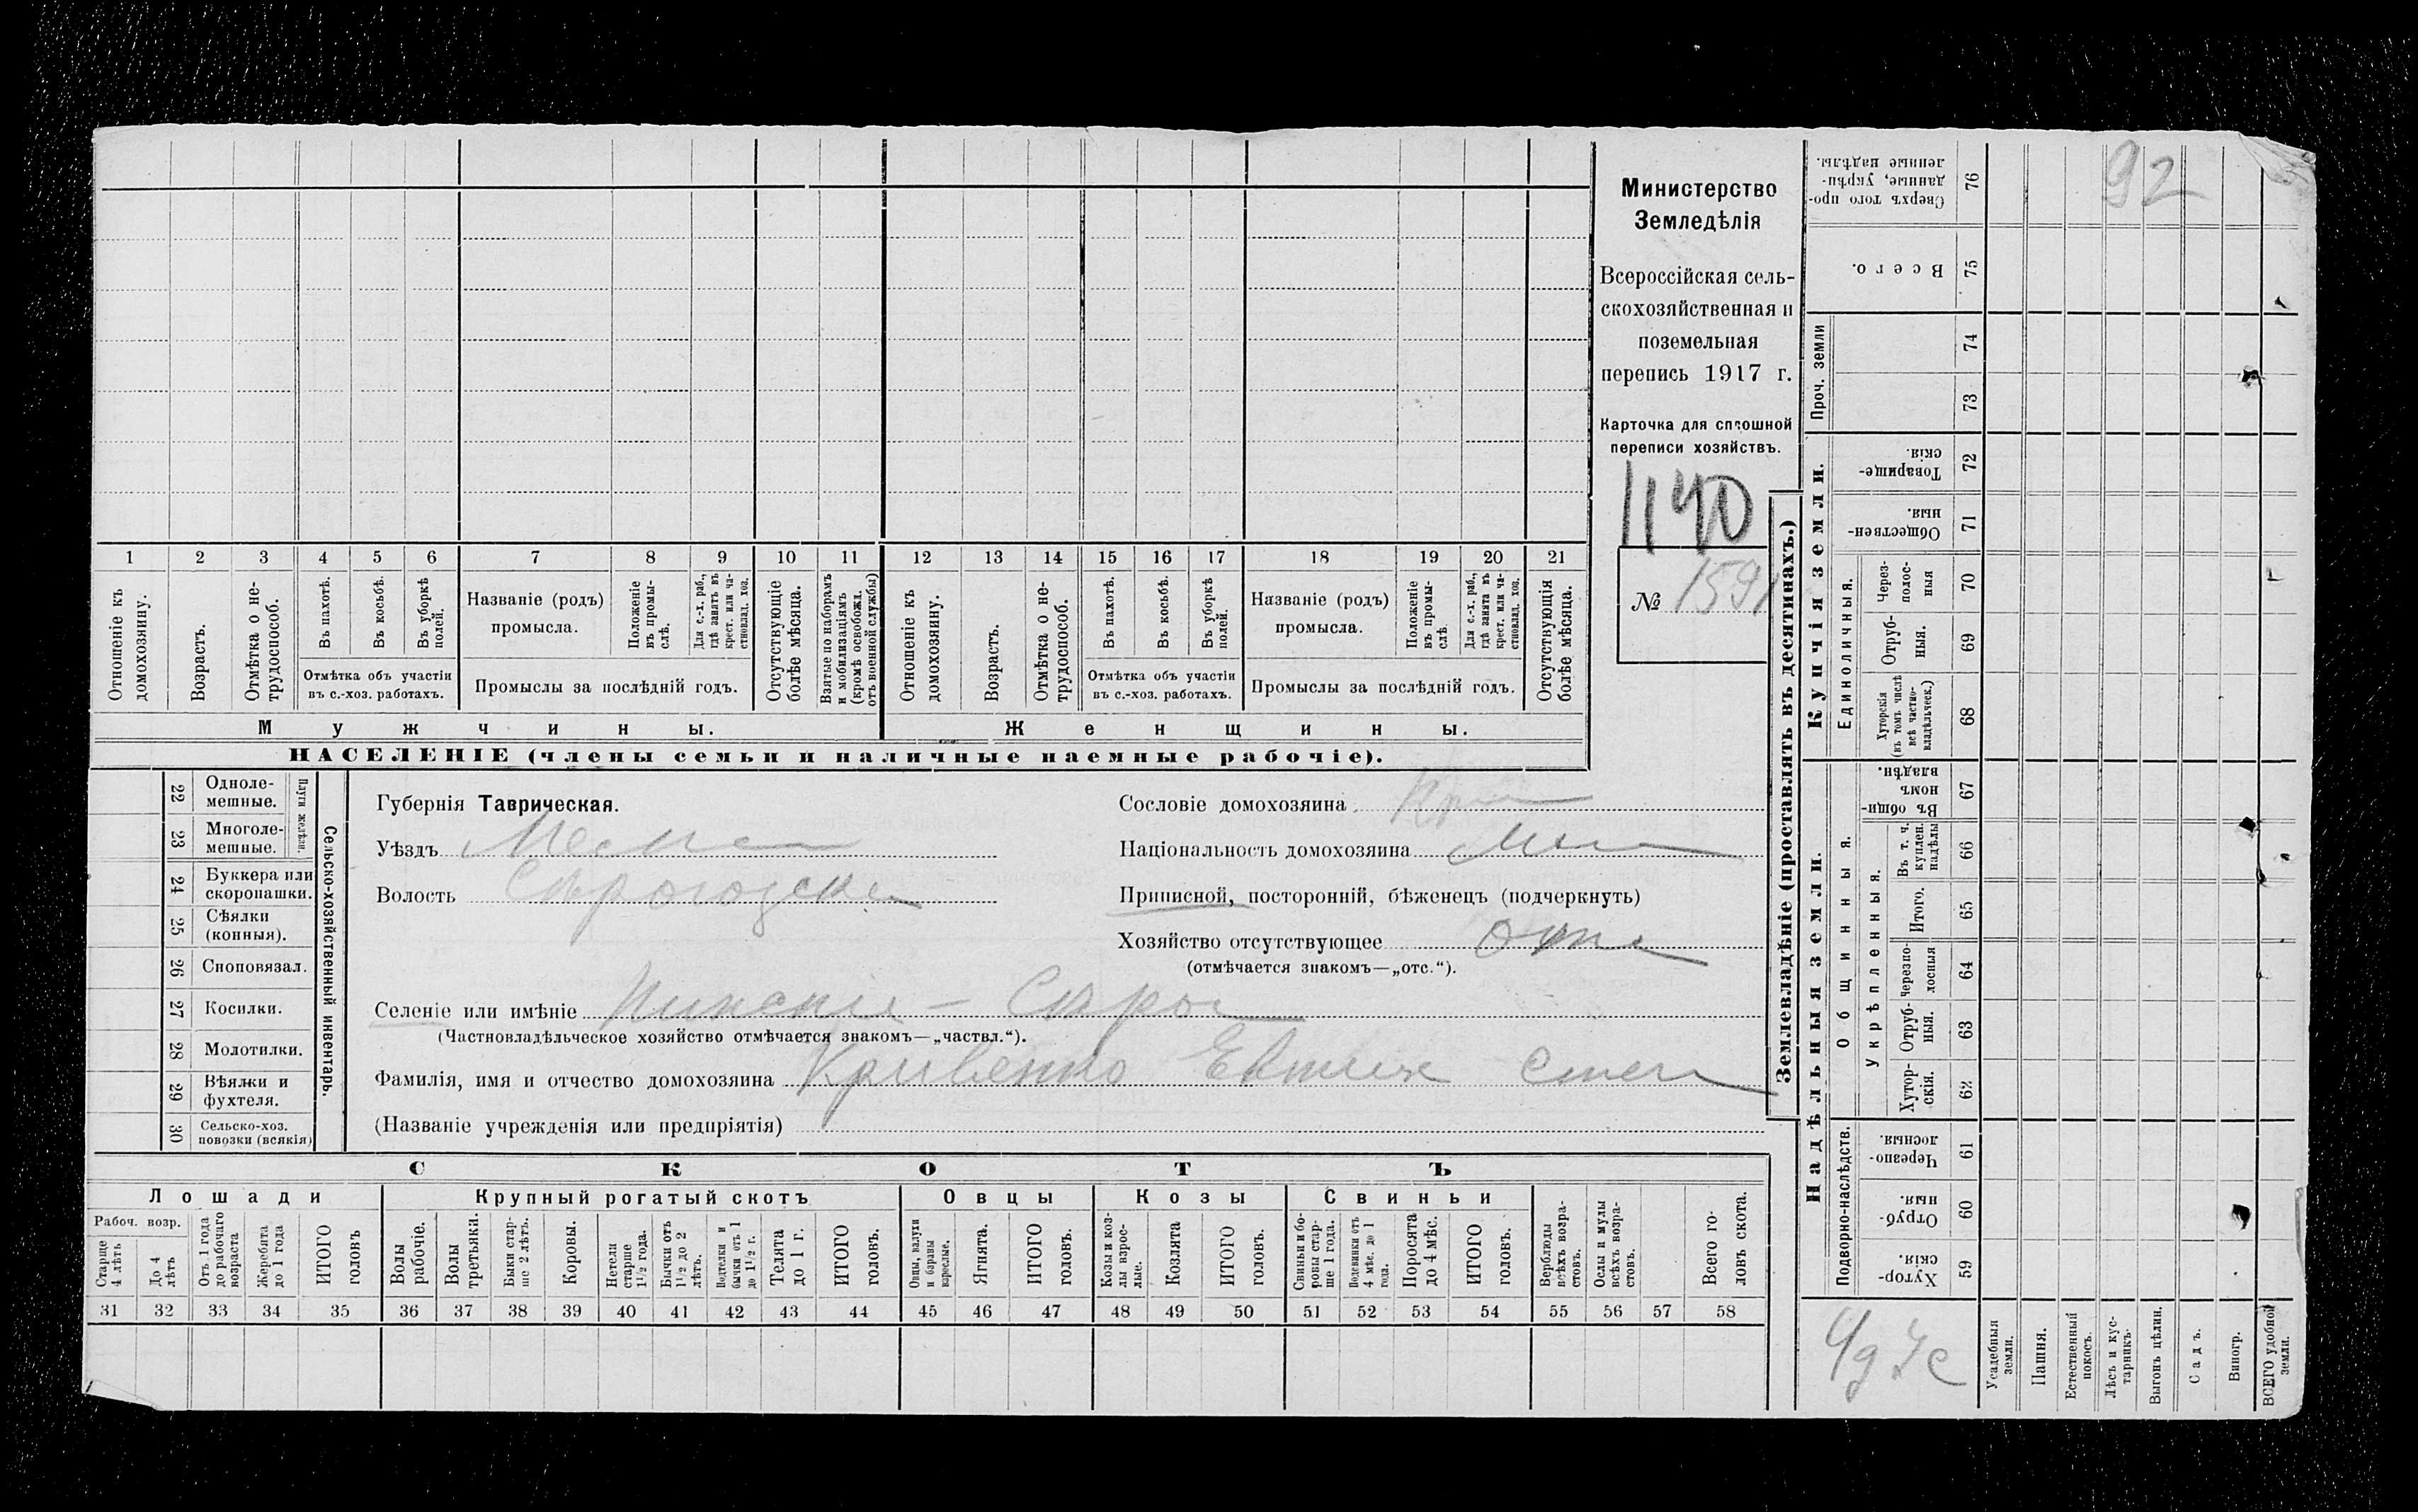 92
Министерство
Земледѣлія
Всероссійская сель-
скохозяйственная и
поземельная
перепись 1917 г.
Карточка для сплошной
переписи хозяйствъ.
1140
№ 1591
1 2 3 4 5 6 7 8 9 10 11 12 13 14 15 16 17 18 19 20 21
Отношеніе къ домохозяину.
Возрастъ.
Отмѣтка о не-трудоспособ.
Въ пахотѣ.
Въ косьбѣ.
Въ уборкѣ полей.
Отмѣтка объ участіи
въ с.-хоз. работахъ.
Названіе (родъ)
промысла.
Положеніе въ промы-слѣ.
Для с.-х. раб., гдѣ занятъ въ крест. или ча-стновлад. хоз.
Промыслы за послѣдній годъ.
Отсутствующіе болѣе мѣсяца.
Взятые по наборамъ и мобилизаціямъ (кромѣ освобожд. отъ военной службы)
Отношеніе къ домохозяину.
Возрастъ.
Отмѣтка о не-трудоспособ.
Въ пахотѣ.
Въ косьбѣ.
Въ уборкѣ полей.
Отмѣтка объ участіи
въ с.-хоз. работахъ.
Названіе (родъ)
промысла.
Положеніе въ промы-слѣ.
Для с.-х. раб., гдѣ занята въ крест. или ча-стновлад. хоз.
Промыслы за послѣдній годъ.
Отсутствующія болѣе мѣсяца.
Мужчины. Женщины.
НАСЕЛЕНІЕ (члены семьи и наличные наемные рабочіе).
Сельско-хозяйственный инвентарь.
Плуги желѣзн.
22 Одноле-мешные.
23 Многоле-мешные.
24 Буккера или скоропашки.
25 Сѣялки (конныя).
26 Сноповязал.
27 Косилки.
28 Молотилки.
29 Вѣялки и фухтеля.
30 Сельско-хоз. повозки (всякія)
Губернія Таврическая.
Уѣздъ
Волость
Сословіе домохозяина
Національность домохозяина
Приписной, посторонній, бѣженецъ (подчеркнуть)
Хозяйство отсутствующее
(отмѣчается знакомъ—„отс.“).
Селеніе или имѣніе
(Частновладѣльческое хозяйство отмѣчается знакомъ—„частвл.“).
Фамилія, имя и отчество домохозяина Кривенко Евтихі Степ
(Названіе учрежденія или предпріятія)
СКОТЪ
Лошади Крупный рогатый скотъ Овцы Козы Свиньи
Рабоч. возр.
Старше 4 лѣтъ
До 4 лѣтъ
Отъ 1 года до рабочаго возраста
Жеребята до 1 года
ИТОГО головъ
Волы рабочіе.
Волы третьяки.
Быки стар-ше 2 лѣтъ.
Коровы.
Нетели старше 1½ года.
Бычки отъ 1½ до 2 лѣтъ.
Подтелки и бычки отъ 1 до 1½ г.
Телята до 1 г.
ИТОГО головъ.
Овцы, валухи и бараны взрослые.
Ягнята.
ИТОГО головъ.
Козы и коз-лы взрос-лые.
Козлята
ИТОГО головъ.
Свиньи и бо-ровы стар-ше 1 года.
Подсвинки отъ 4 мѣс. до 1 года.
Поросята до 4 мѣс.
ИТОГО головъ.
Верблюды всѣхъ возра-стовъ.
Ослы и мулы всѣхъ возра-стовъ.
Всего го-ловъ скота.
31 32 33 34 35 36 37 38 39 40 41 42 43 44 45 46 47 48 49 50 51 52 53 54 55 56 57 58
Землевладѣніе (проставлять въ десятинахъ.)
Надѣльныя земли.
Подворно-наслѣдств.
Хутор-скія. 59
Отруб-ныя. 60
Черезпо-лосныя. 61
Общинныя.
Укрѣпленныя.
Хутор-скія. 62
Отруб-ныя. 63
Черезпо-лосныя 64
Итого. 65
Въ т. ч. куплен. надѣлы 66
Въ общи-номъ владѣн. 67
Купчія земли.
Единоличныя.
Хуторскія (въ томъ числѣ всѣ частно-владѣльческ.) 68
Отруб-ныя. 69
Через-полос-ныя 70
Обществен-ныя. 71
Товарище-скія. 72
Проч. земли
73
74
Всего. 75
Сверхъ того про-данные, укрѣп-ленные надѣлы. 76
Усадебныя земли.
Пашня.
Естественный покосъ.
Лѣсъ и кус-тарникъ.
Выгонъ цѣлин.
Садъ.
Виногр.
ВСЕГО удобной земли.